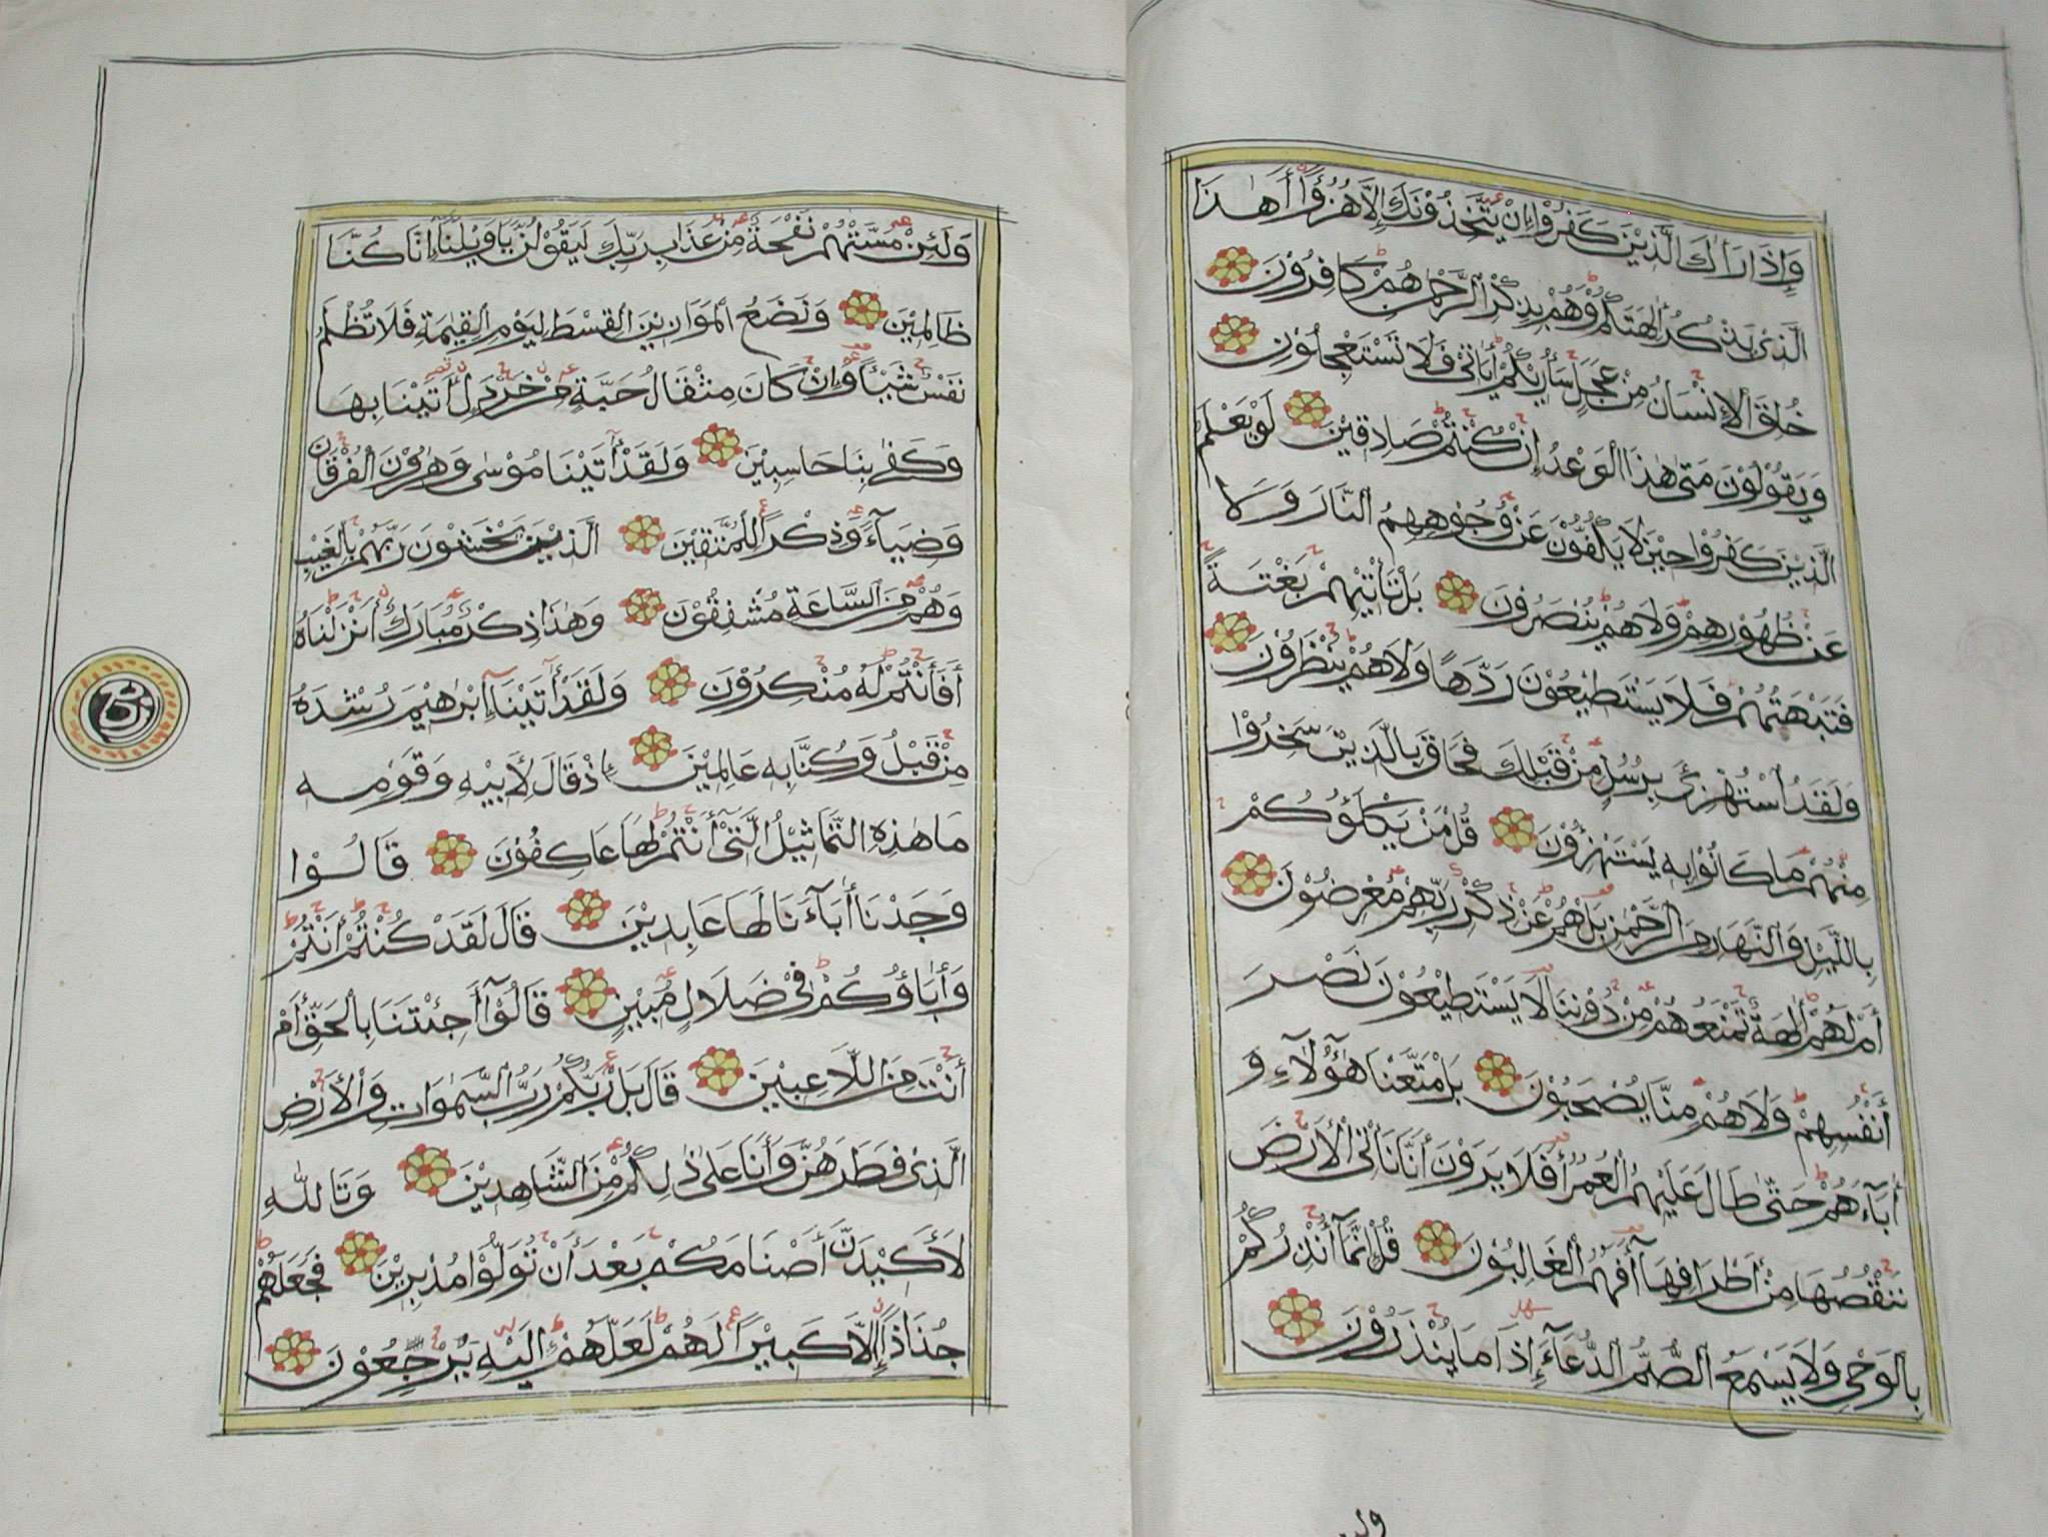 وَإِذَا رَاٰكَ الَّذِيْنَ كَفَرُوْا إِنْ يَّتَّخِذُوْنَكَ إِلَّا هُزُوًا أَهٰذَا
الَّذِىْ يَذْكُرُ اٰلِهَتَكُمْ وَهُمْ بِذِكْرِ الرَّحْمٰنِ هُمْ كَافِرُوْنَ
خُلِقَ الْإِنْسَانُ مِنْ عَجَلٍ سَأُرِيْكُمْ اٰيَاتِىْ فَلَا تَسْتَعْجِلُوْنِ
وَيَقُوْلُوْنَ مَتٰى هٰذَا الْوَعْدُ إِنْ كُنْتُمْ صَادِقِيْنَ لَوْ يَعْلَمُ
الَّذِيْنَ كَفَرُوْا حِيْنَ لَا يَكُفُّوْنَ عَنْ وُجُوْهِهِمُ النَّارَ وَلَا
عَنْ ظُهُوْرِهِمْ وَلَا هُمْ يُنْصَرُوْنَ بَلْ تَأْتِيْهِمْ بَغْتَةً
فَتَبْهَتُهُمْ فَلَا يَسْتَطِيْعُوْنَ رَدَّهَا وَلَا هُمْ يُنْظَرُوْنَ
وَلَقَدُ اسْتُهْزِئَ بِرُسُلٍ مِنْ قَبْلِكَ فَحَاقَ بِالَّذِيْنَ سَخِرُوْا
مِنْهُمْ مَا كَانُوْا بِهِ يَسْتَهْزِؤُوْنَ قُلْ مَنْ يَكْلَؤُكُمْ
بِاللَّيْلِ وَالنَّهَارِ مِنَ الرَّحْمٰنِ بَلْ هُمْ عَنْ ذِكْرِ رَبِّهِمْ مُعْرِضُوْنَ
أَمْ لَهُمْ اٰلِهَةٌ تَمْنَعُهُمْ مِنْ دُوْنِنَا لَا يَسْتَطِيْعُوْنَ نَصْرَ
أَنْفُسِهِمْ وَلَا هُمْ مِنَّا يُصْحَبُوْنَ بَلْ مَتَّعْنَا هٰؤُلَآءِ وَ
اٰبَآءَهُمْ حَتّٰى طَالَ عَلَيْهِمُ الْعُمُرُ أَفَلَا يَرَوْنَ أَنَّا نَأْتِى الْأَرْضَ
نَنْقُصُهَا مِنْ أَطْرَافِهَا أَفَهُمُ الْغَالِبُوْنَ قُلْ إِنَّمَآ أُنْذِرُكُمْ
بِالْوَحْىِ وَلَا يَسْمَعُ الصُّمُّ الدُّعَآءَ إِذَا مَا يُنْذَرُوْنَ
وَلَئِنْ مَسَّتْهُمْ نَفْحَةٌ مِنْ عَذَابِ رَبِّكَ لَيَقُوْلُنَّ يَا وَيْلَنَا إِنَّا كُنَّا
ظَالِمِيْنَ وَنَضَعُ الْمَوَازِيْنَ الْقِسْطَ لِيَوْمِ الْقِيٰمَةِ فَلَا تُظْلَمُ
نَفْسٌ شَيْئًا وَإِنْ كَانَ مِثْقَالُ حَبَّةٍ مِنْ خَرْدَلٍ أَتَيْنَا بِهَا
وَكَفٰى بِنَا حَاسِبِيْنَ وَلَقَدْ اٰتَيْنَا مُوْسٰى وَهٰرُوْنَ الْفُرْقَانَ
وَضِيَآءً وَذِكْرًا لِلْمُتَّقِيْنَ الَّذِيْنَ يَخْشَوْنَ رَبَّهُمْ بِالْغَيْبِ
وَهُمْ مِنَ السَّاعَةِ مُشْفِقُوْنَ وَهٰذَا ذِكْرٌ مُبَارَكٌ أَنْزَلْنَاهُ
أَفَأَنْتُمْ لَهُ مُنْكِرُوْنَ وَلَقَدْ اٰتَيْنَآ إِبْرٰهِيْمَ رُشْدَهُ
مِنْ قَبْلُ وَكُنَّا بِهِ عَالِمِيْنَ إِذْ قَالَ لِأَبِيْهِ وَقَوْمِهِ
مَا هٰذِهِ التَّمَاثِيْلُ الَّتِىْ أَنْتُمْ لَهَا عَاكِفُوْنَ قَالُوْا
وَجَدْنَا اٰبَآءَنَا لَهَا عَابِدِيْنَ قَالَ لَقَدْ كُنْتُمْ أَنْتُمْ
وَاٰبَاؤُكُمْ فِىْ ضَلَالٍ مُبِيْنٍ قَالُوْآ أَجِئْتَنَا بِالْحَقِّ أَمْ
أَنْتَ مِنَ اللَّاعِبِيْنَ قَالَ بَلْ رَبُّكُمْ رَبُّ السَّمٰوَاتِ وَالْأَرْضِ
الَّذِىْ فَطَرَهُنَّ وَأَنَا عَلٰى ذٰلِكُمْ مِنَ الشَّاهِدِيْنَ وَتَاللّٰهِ
لَأَكِيْدَنَّ أَصْنَامَكُمْ بَعْدَ أَنْ تُوَلُّوْا مُدْبِرِيْنَ فَجَعَلَهُمْ
جُذَاذًا إِلَّا كَبِيْرًا لَهُمْ لَعَلَّهُمْ إِلَيْهِ يَرْجِعُوْنَ